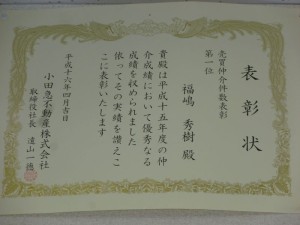 表彰状
売買仲介件数表彰
第一位
福嶋 秀樹 殿
貴殿は平成十五年度の仲
介成績において優秀なる
成績を収められました
依ってその実績を讃えこ
こに表彰いたします
平成十六年四月吉日
小田急不動産株式会社
取締役社長 遠山一徳